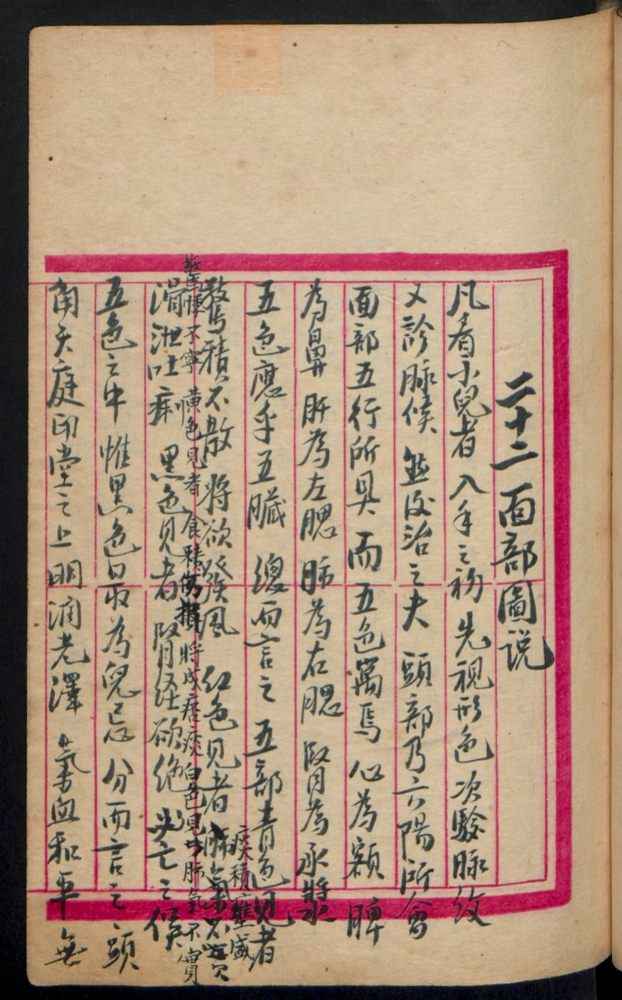 二十二面部圖説
凡看小兒者入手之初先視形色次驗脉紋
又診脉候然後治之夫頭部乃六陽所會
面部五行所具而五色寓焉心為額脾
為鼻肝為左腮肺為右腮腎為承漿
五色應乎五臟總而言之五部青色見者
驚積不散將欲發風紅色見者痰積壅盛
驚悸不寧黃色見者食積傷損將成疳痰白色見者肺氣不實
滑泄吐痢黑色見者腎經欲絶危亡之候
五色之中惟黑色最為兒忌分而言之額
角天庭印堂之上明潤光澤氣血和平無